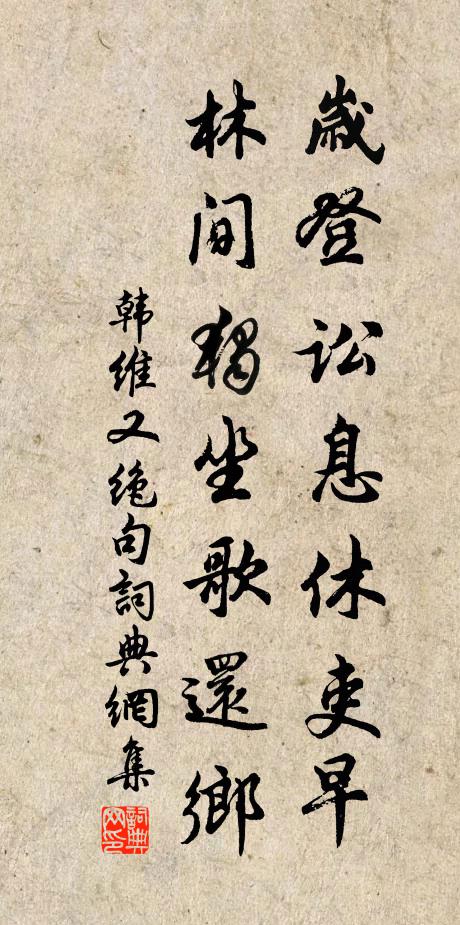 歲登訟息休吏早
林間獨坐歌還鄉
韩維又绝句詞典網集
詞典
网印